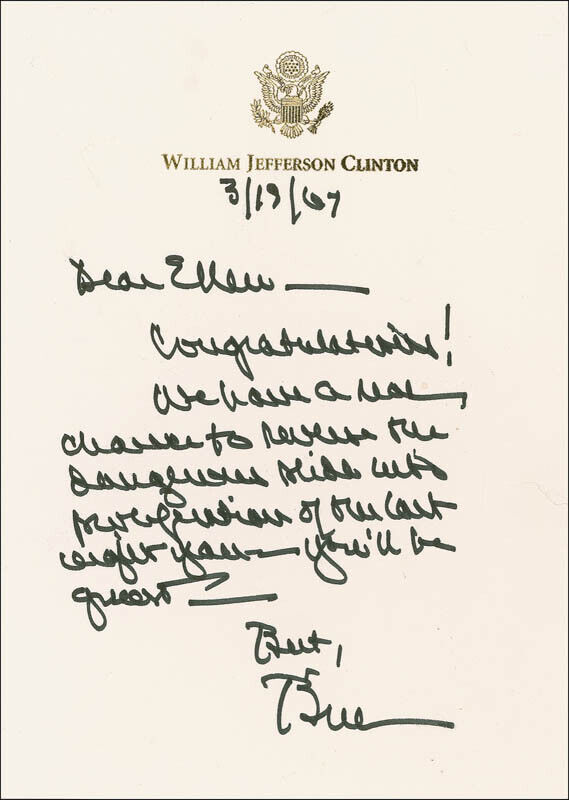 WILLIAM JEFFERSON CLINTON
3/19/09
Dear Ellen —
Congratulations!
We have a real
chance to reverse the
dangerous slide into
proliferation of the last
eight years — you'll be
great —
Best,
Bill